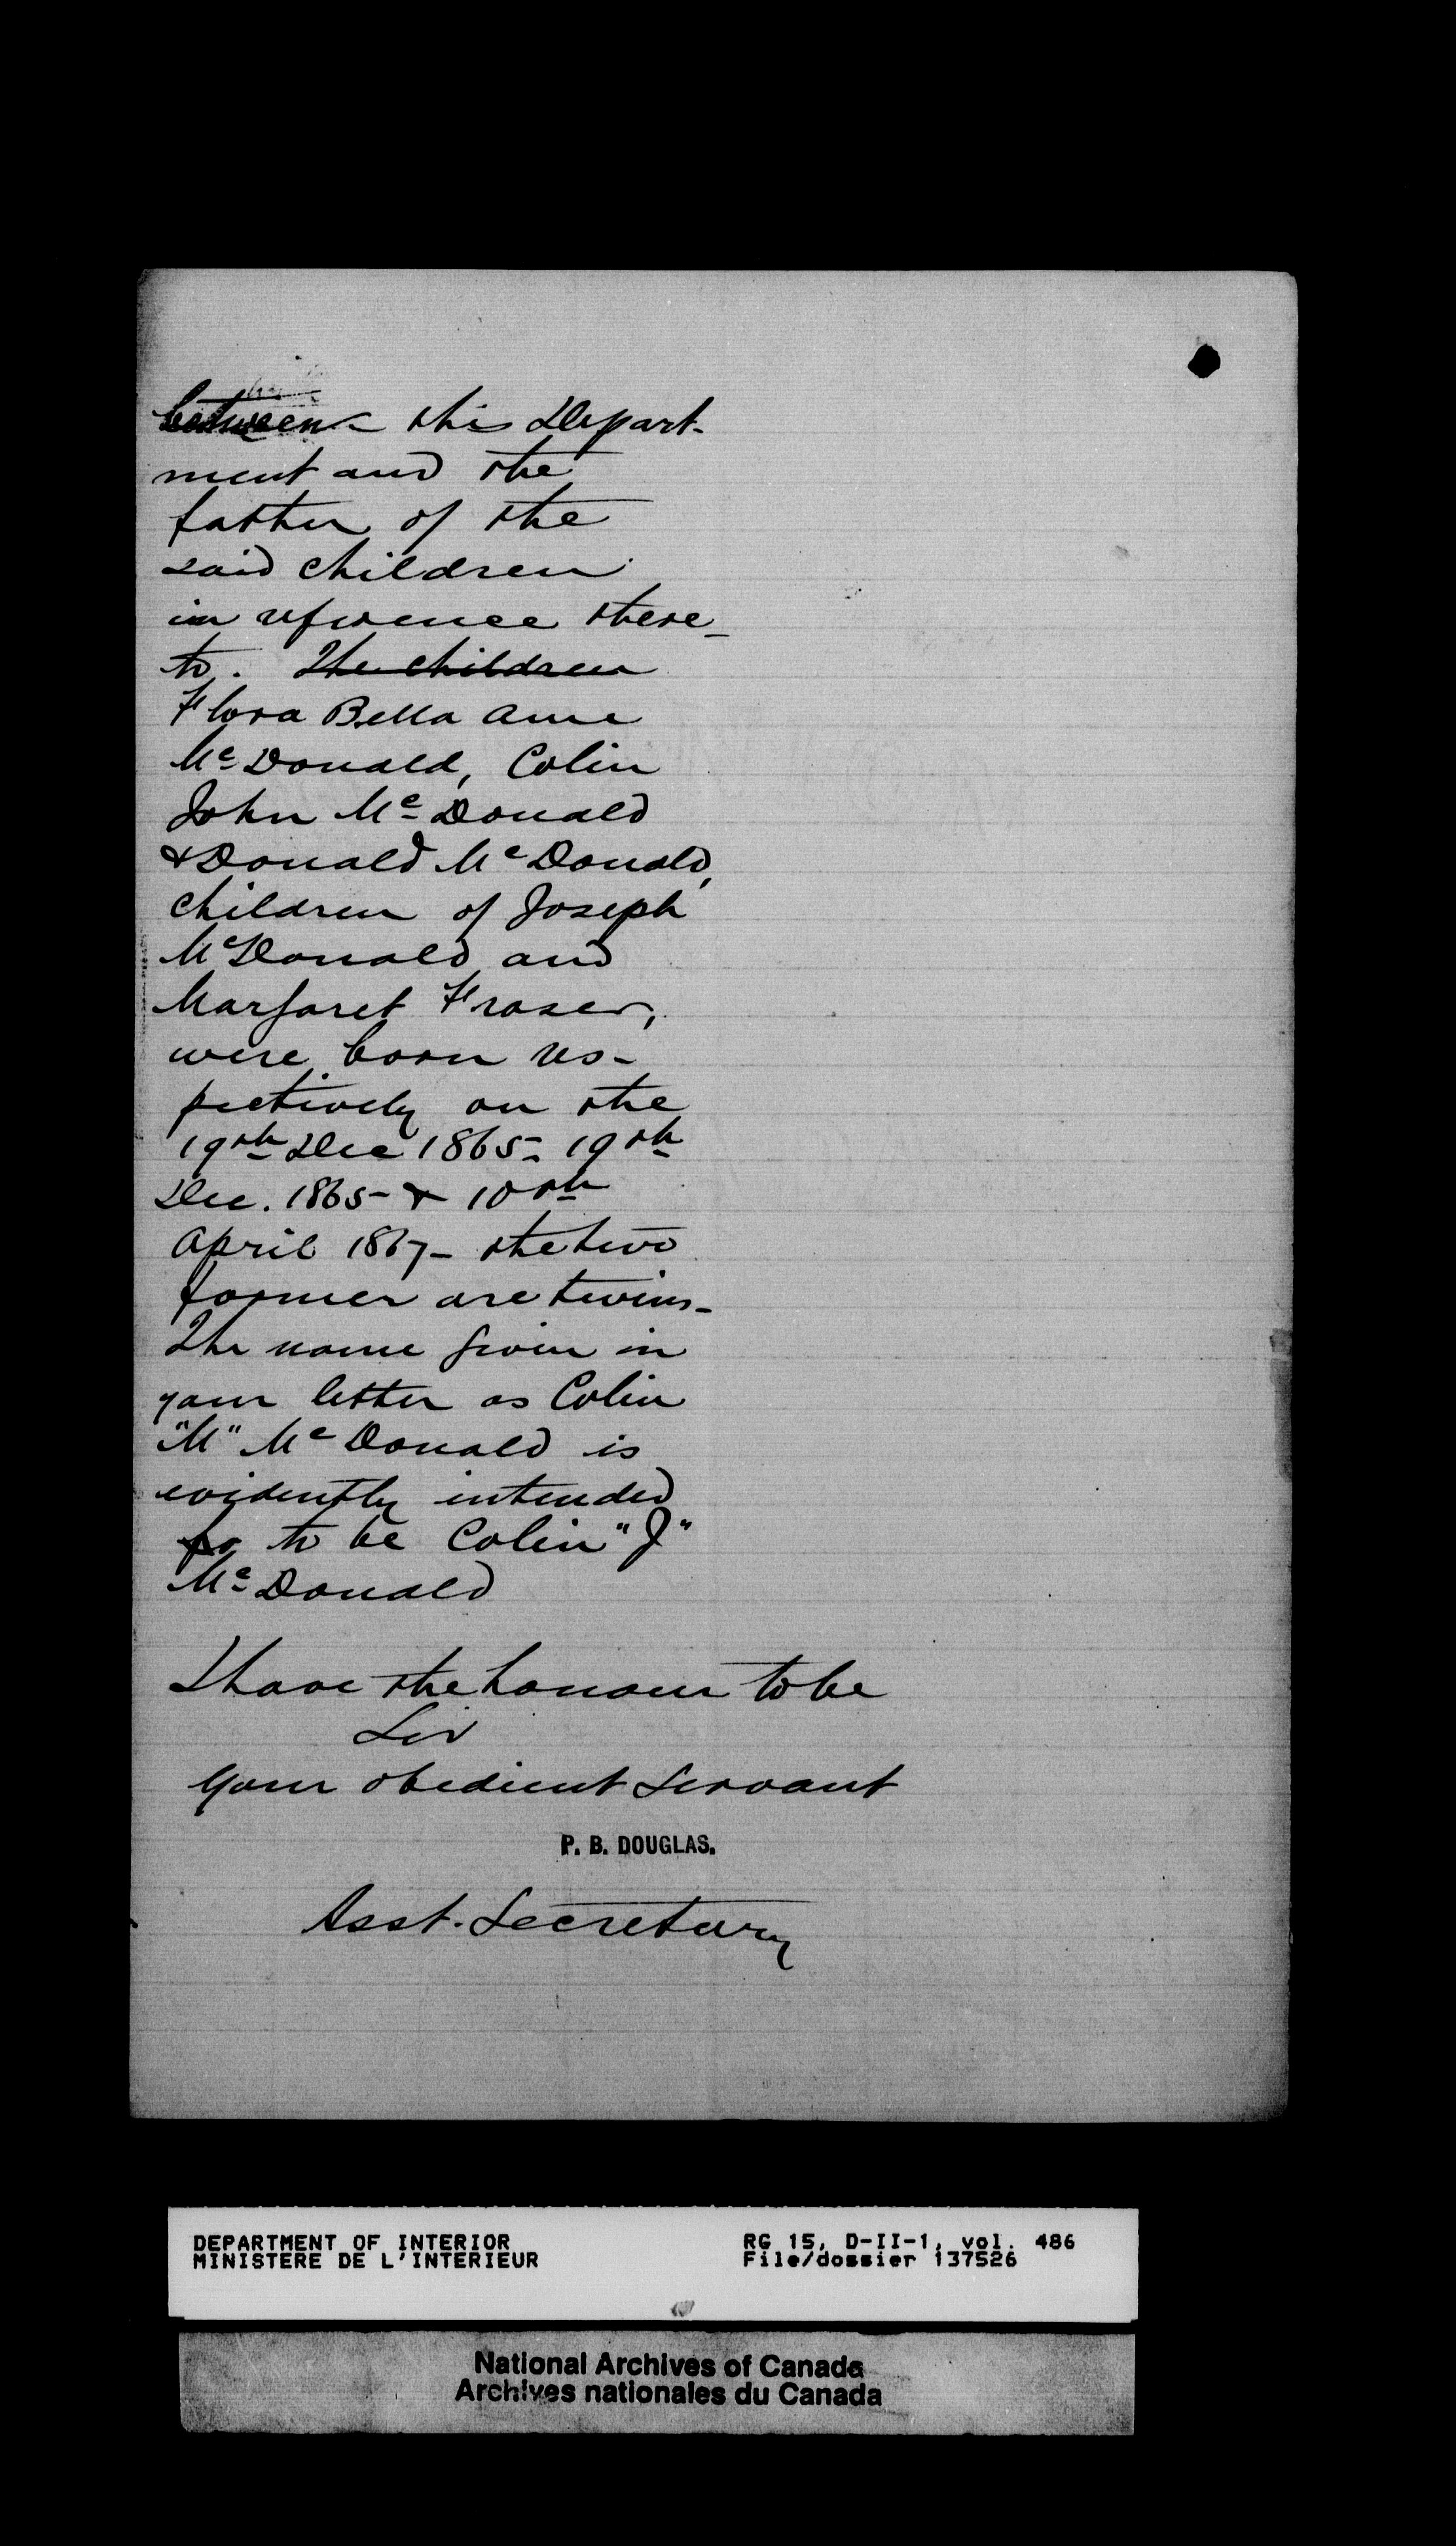 between this Depart-
ment and the
father of the
said children
in reference there-
to. The children
Flora Bella Ann
McDonald, Colin
John McDonald
& Donald McDonald,
children of Joseph
McDonald and
Margaret Fraser,
were born res-
pectively on the
19th Dec 1865- 19th
Dec. 1865- & 10th
April 1867- the two
former are twins-
The name given in
your letter as Colin
"M" McDonald is
evidently intended
fo to be Colin "J"
McDonald
I have the honour to be
Sir
Your obedient servant
P. B. DOUGLAS.
Asst. Secretary
DEPARTMENT OF INTERIOR RG 15, D-II-1, vol. 486
MINISTERE DE L'INTERIEUR File/dossier 137526
National Archives of Canada
Archives nationales du Canada